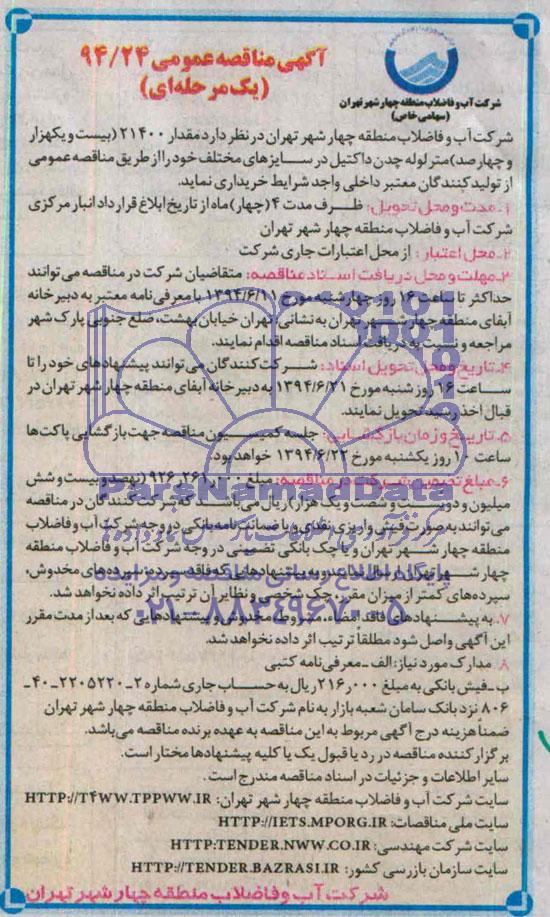 آگهی مناقصه عمومی ۹۴/۲۴
(یک مرحله‌ای)
شرکت آب و فاضلاب منطقه چهار شهر تهران
(سهامی خاص)
شرکت آب و فاضلاب منطقه چهار شهر تهران در نظر دارد مقدار ۲۱۴۰۰ (بیست و یکهزار
و چهارصد) متر لوله چدن داکتیل در سایزهای مختلف خود را از طریق مناقصه عمومی
از تولیدکنندگان معتبر داخلی واجد شرایط خریداری نماید.
۱ـ مدت و محل تحویل: ظرف مدت ۴ (چهار) ماه از تاریخ ابلاغ قرارداد انبار مرکزی
شرکت آب و فاضلاب منطقه چهار شهر تهران
۲ـ محل اعتبار: از محل اعتبارات جاری شرکت
۳ـ مهلت و محل دریافت اسناد مناقصه: متقاضیان شرکت در مناقصه می‌توانند
حداکثر تا ساعت ۱۶ روز چهارشنبه مورخ ۱۳۹۴/۶/۱۱ با معرفی‌نامه معتبر به دبیرخانه
آبفای منطقه چهار شهر تهران به نشانی: تهران خیابان بهشت، ضلع جنوبی پارک شهر
مراجعه و نسبت به دریافت اسناد مناقصه اقدام نمایند.
۴ـ تاریخ و محل تحویل اسناد: شرکت‌کنندگان می‌توانند پیشنهادهای خود را تا
ساعت ۱۶ روز شنبه مورخ ۱۳۹۴/۶/۲۱ به دبیرخانه آبفای منطقه چهار شهر تهران در
قبال اخذ رسید تحویل نمایند.
۵ـ تاریخ و زمان بازگشایی: جلسه کمیسیون مناقصه جهت بازگشایی پاکت‌ها
ساعت ۱۰ روز یکشنبه مورخ ۱۳۹۴/۶/۲۲ خواهد بود.
۶ـ مبلغ تضمین شرکت در مناقصه: مبلغ ۹۲۶,۲۶۱,۰۰۰ (نهصد و بیست و شش
میلیون و دویست و شصت و یک هزار) ریال می‌باشد که شرکت‌کنندگان در مناقصه
می‌توانند به صورت فیش واریزی نقدی و یا ضمانت‌نامه بانکی در وجه شرکت آب و فاضلاب
منطقه چهار شهر تهران و یا چک بانکی تضمینی در وجه شرکت آب و فاضلاب منطقه
چهار شهر تهران ارسال نمایند و به پیشنهادهایی که فاقد سپرده، سپرده‌های مخدوش،
سپرده‌های کمتر از میزان مقرر، چک شخصی و نظایر آن ترتیب اثر داده نخواهد شد.
۷ـ به پیشنهادهای فاقد امضاء، مشروط، مخدوش و پیشنهادهایی که بعد از مدت مقرر
این آگهی واصل شود مطلقاً ترتیب اثر داده نخواهد شد.
۸ـ مدارک مورد نیاز: الف ـ معرفی‌نامه کتبی
ب ـ فیش بانکی به مبلغ ۲۱۶,۰۰۰ ریال به حساب جاری شماره ۲ـ۲۲۰۵۲۲۰ـ۴۰ـ
۸۰۶ نزد بانک سامان شعبه بازار به نام شرکت آب و فاضلاب منطقه چهار شهر تهران
ضمناً هزینه درج آگهی مربوط به این مناقصه به عهده برنده مناقصه می‌باشد.
برگزارکننده مناقصه در رد یا قبول یک یا کلیه پیشنهادها مختار است.
سایر اطلاعات و جزئیات در اسناد مناقصه مندرج است.
سایت شرکت آب و فاضلاب منطقه چهار شهر تهران: HTTP://T4WW.TPPWW.IR
سایت ملی مناقصات: HTTP://IETS.MPORG.IR
سایت شرکت مهندسی: HTTP:TENDER.NWW.CO.IR
سایت سازمان بازرسی کشور: HTTP://TENDER.BAZRASI.IR
شرکت آب و فاضلاب منطقه چهار شهر تهران
ParsNamadData
پایگاه اطلاع رسانی مناقصه و مزایده
۰۲۱-۸۸۳۴۹۶۷۰-۵